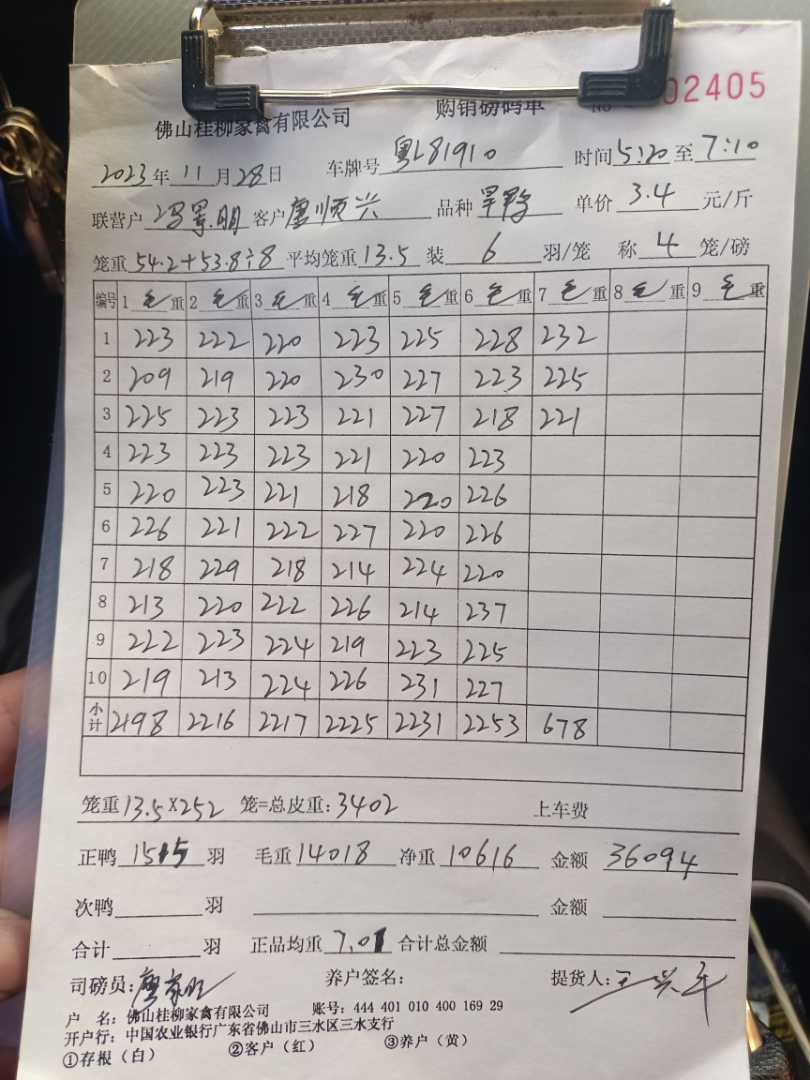 佛山桂柳家禽有限公司 购销磅码单 No 02405
2023年11月28日 车牌号 粤L81910 时间5:20至7:10
联营户 冯景明 客户 唐顺兴 品种 旱鸭 单价 3.4 元/斤
笼重54.2+53.8÷8 平均笼重13.5 装 6 羽/笼 称 4 笼/磅
编号 1 毛重 2 毛重 3 毛重 4 毛重 5 毛重 6 毛重 7 毛重 8 毛重 9 毛重
1 223 222 220 223 225 228 232
2 209 219 220 230 227 223 225
3 225 223 223 221 227 218 221
4 223 223 223 221 220 223
5 220 223 221 218 220 226
6 226 221 222 227 220 226
7 218 229 218 214 224 220
8 213 220 222 226 214 237
9 222 223 224 219 223 225
10 219 213 224 226 231 227
小计 2198 2216 2217 2225 2231 2253 678
笼重13.5×252 笼=总皮重:3402 上车费
正鸭 1515 羽 毛重14018 净重 10616 金额 36094
次鸭 羽 金额
合计 羽 正品均重 7.01 合计总金额
司磅员: 养户签名: 提货人:
户 名:佛山桂柳家禽有限公司 账号:444 401 010 400 169 29
开户行:中国农业银行广东省佛山市三水区三水支行
①存根(白) ②客户(红) ③养户(黄)